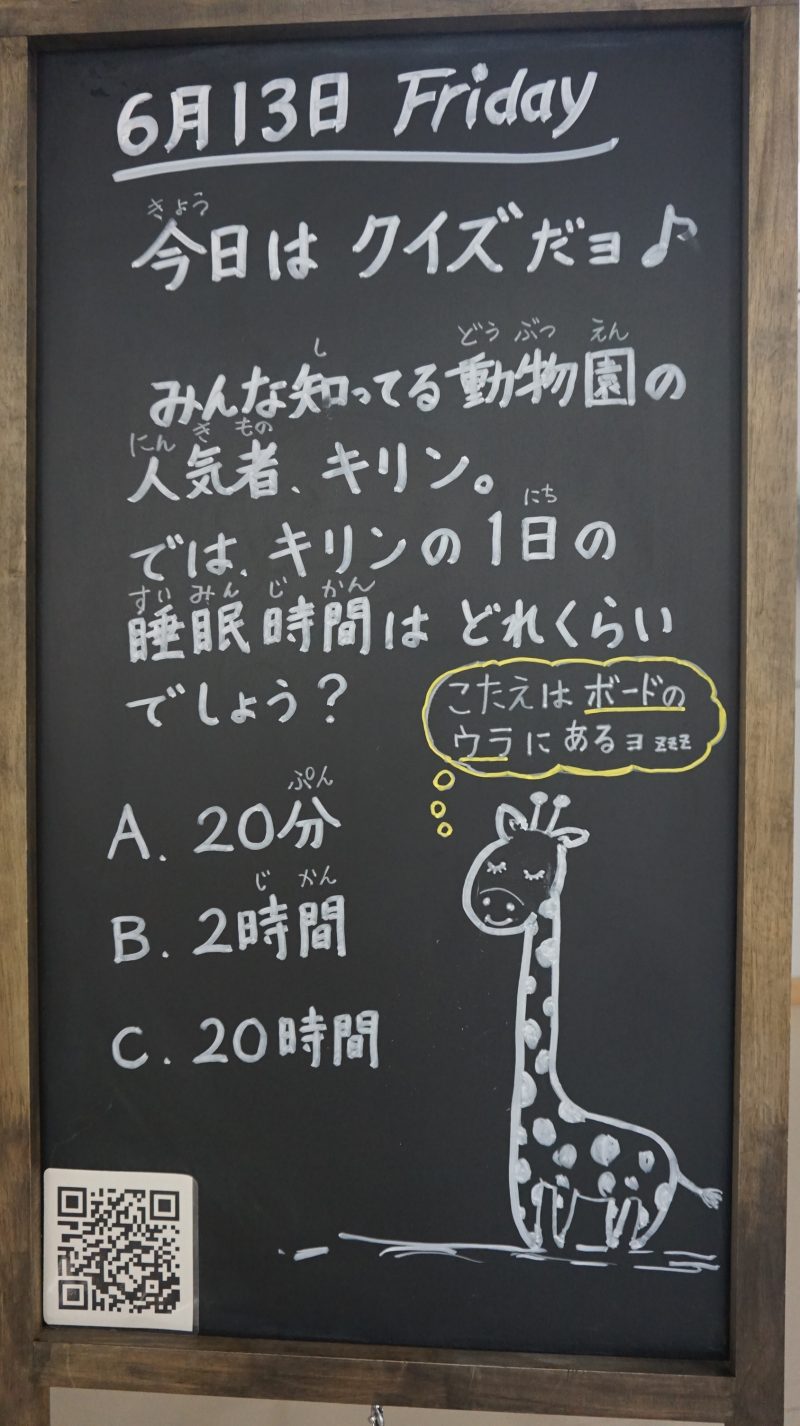 6月13日 Friday
きょう
今日は クイズだヨ♪
し どう ぶつ えん
みんな知ってる動物園の
にん き もの
人気者、キリン。
にち
では、キリンの1日の
すい みん じ かん
睡眠時間は どれくらい
でしょう?
こたえは ボードの
ウラに あるヨ zzz
ぷん
A. 20分
じ かん
B. 2時間
C. 20時間